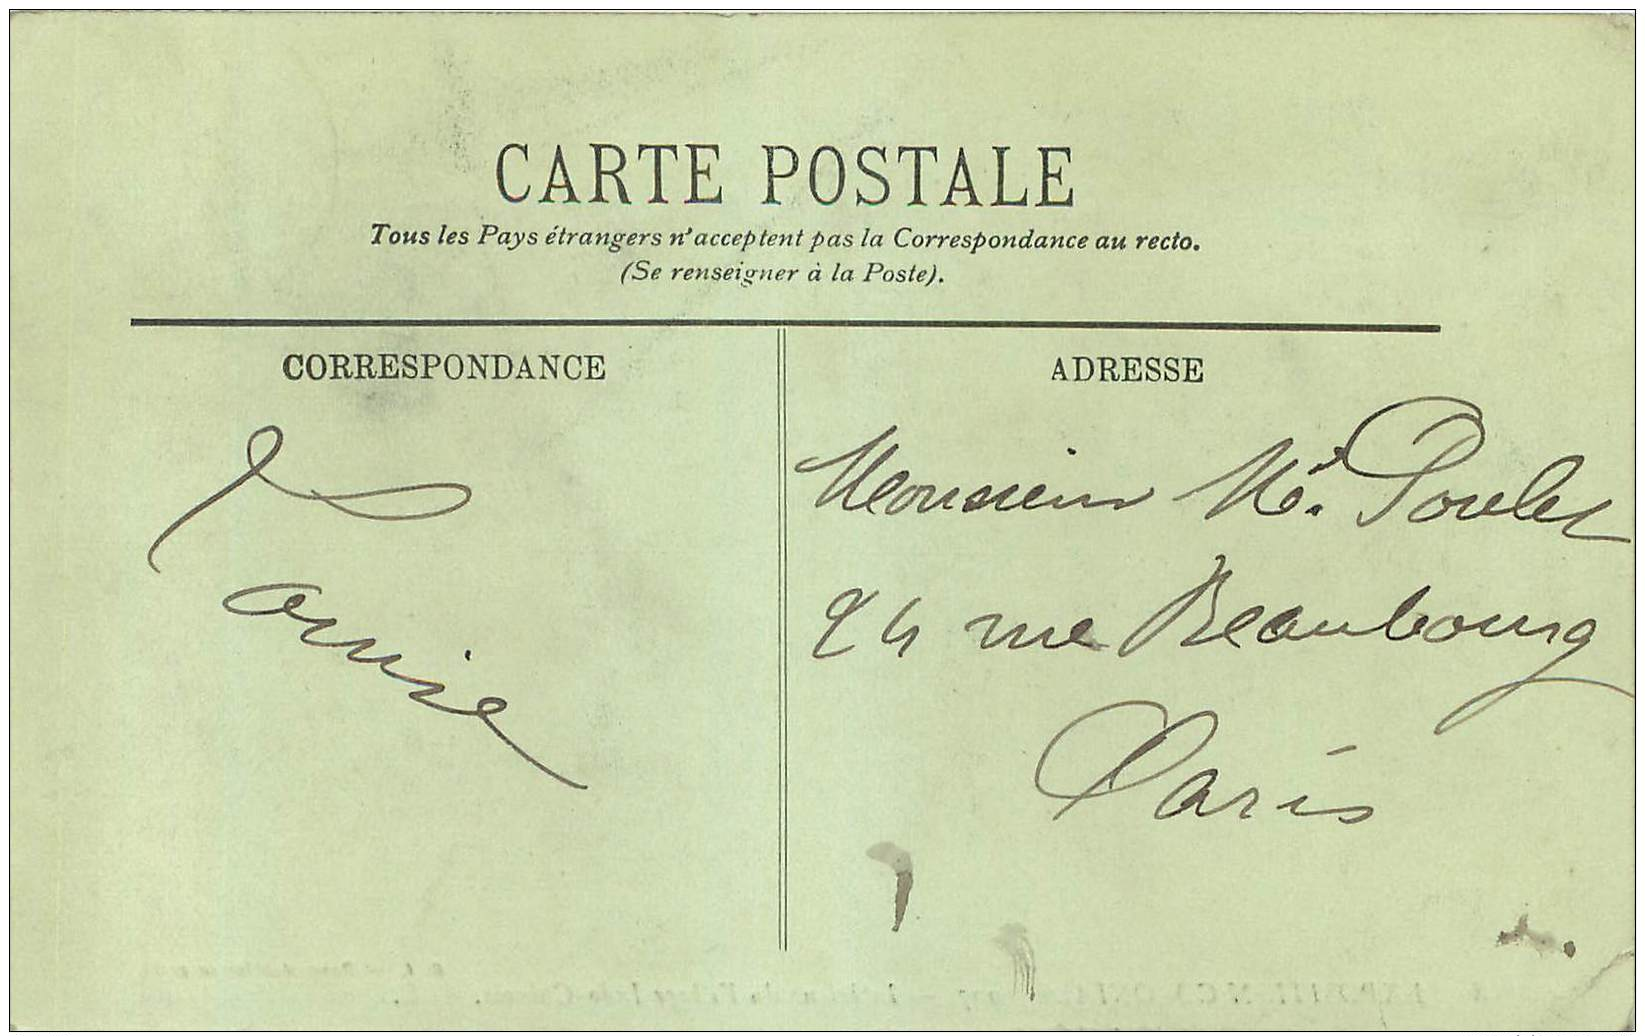 CARTE POSTALE
Tous les Pays étrangers n'acceptent pas la Correspondance au recto.
(Se renseigner à la Poste).
CORRESPONDANCE
Louise
ADRESSE
Monsieur Mé. Poulet
24 rue Beaubourg
Paris